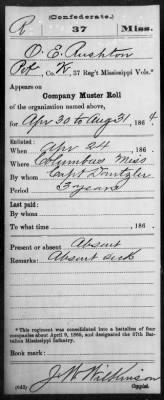 (Confederate.)
R 37 Miss.
O. E. Rushton
Pvt, Co. K, 37 Reg't Mississippi Vols.*
Appears on
Company Muster Roll
of the organization named above,
for Apr 30 to Aug 31, 1864
Enlisted:
When Apr 24, 186 .
Where Columbus Miss
By whom Capt Dantzler
Period 3 years
Last paid:
By whom
To what time , 186 .
Present or absent Absent
Remarks: Absent sick
*This regiment was consolidated into a battalion of four
companies about April 9, 1865, and designated the 37th Bat-
talion Mississippi Infantry.
Book mark:
J. W. Wilkinson
(642) Copyist.